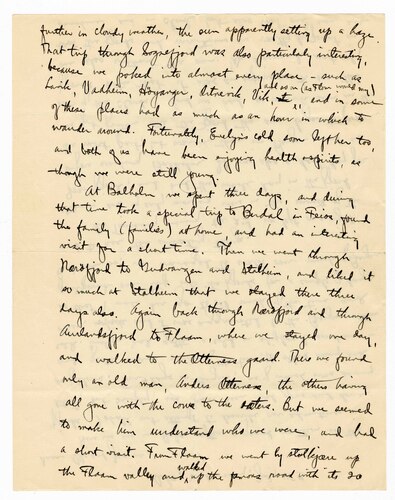 further in cloudy weather, the sun apparently setting up a haze.
That trip through Sognefjord was also particularly interesting,
because we poked into almost every place – such as
Lavik, Vadheim, Høyanger, Vik, and so on (as Tom would say)
and in some
of these places had as much as an hour in which to
wander around. Fortunately, Evelyn's cold soon left her too,
and both of us have been enjoying health & spirits, as
though we were still young.
At Balholm we spent three days, and during
that time took a special trip to Berdal in Feios, found
the family (families) at home, and had an interesting
visit for a short time. Then we went through
Nærøfjord to Gudvangen and Stalheim, and liked it
so much at Stalheim that we stayed there three
days also. Again back through Nærøfjord and through
Aurlandsfjord to Flaam, where we stayed one day,
and walked to the Otterness gaard. There we found
only an old man, Anders Otterness, the others having
all gone with the cows to the sæters. But we seemed
to make him understand who we were, and had
a short visit. From Flaam we went by stolkjære up
the Flaam valley and walked up the famous road with its 20